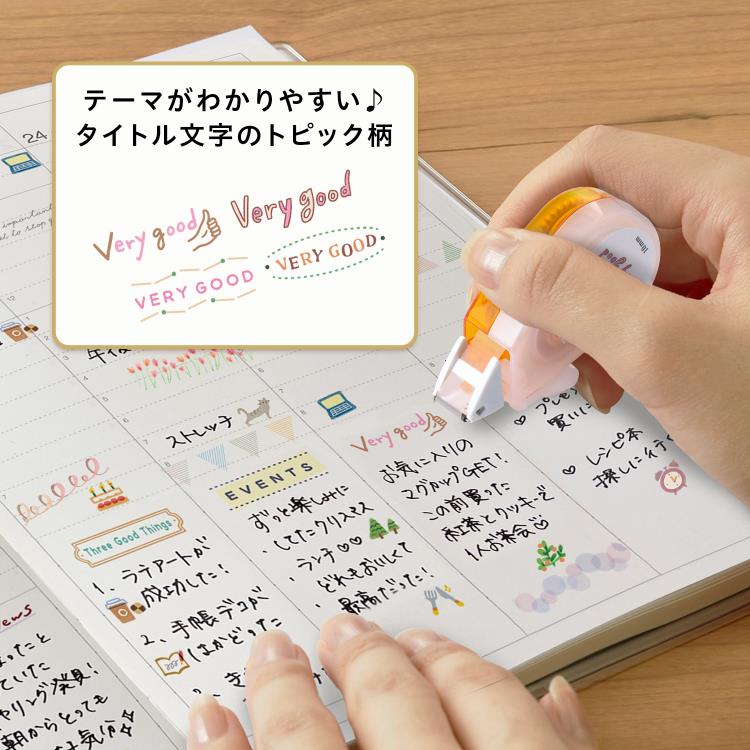 テーマがわかりやすい♪
タイトル文字のトピック柄
Very good
Very good
VERY GOOD
VERY GOOD
24
important
12
午後
2
3
4
5
6
7
8
7
ストレッチ
10mm
Very good
EVENTS
Three Good Things
1、ラテアートが
成功したー!
2、手帳デコが
はかどった
ずっと楽しみに
していたクリスマス
ランチ♡♡
どれもおいしくて
最高だった!
お気に入りの
マグカップGET!
この前買った
紅茶とクッキーで
1人お茶会♡
買いに
♡ レシピ本
探しに行く
ews